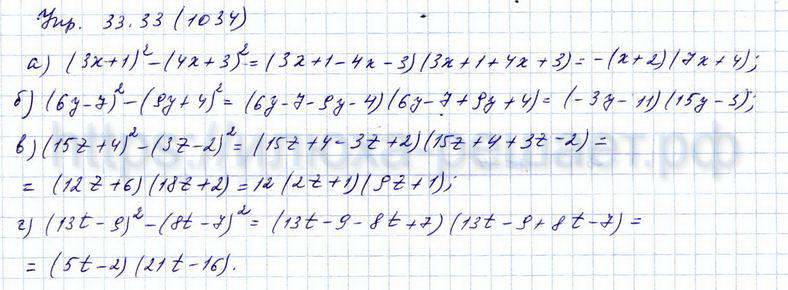 Упр. 33.33 (1034)
а) (3x+1)²-(4x+3)²=(3x+1-4x-3)(3x+1+4x+3)=-(x+2)(7x+4);
б) (6y-7)²-(9y+4)²=(6y-7-9y-4)(6y-7+9y+4)=(-3y-11)(15y-3);
в) (15z+4)²-(3z-2)²=(15z+4-3z+2)(15z+4+3z-2)=
=(12z+6)(18z+2)=12(2z+1)(9z+1);
г) (13t-9)²-(8t-7)²=(13t-9-8t+7)(13t-9+8t-7)=
=(5t-2)(21t-16).